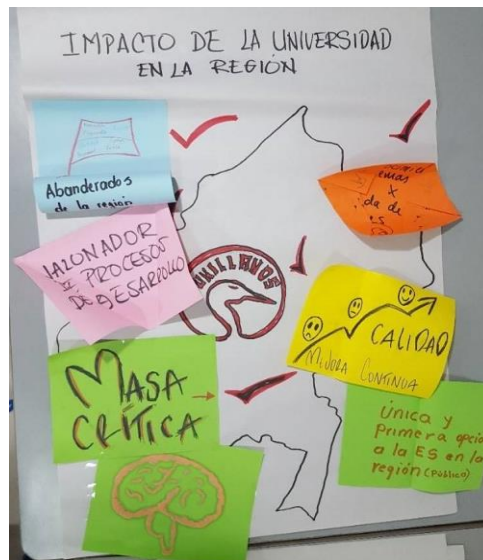 IMPACTO DE LA UNIVERSIDAD
EN LA REGIÓN
Abanderados
de la región
JALONADOR
DE PROCESOS
DE DESARROLLO
UNILLANOS
emas
X
da de
CALIDAD
MEJORA CONTINUA
MASA
CRÍTICA
Única y
Primera opció
a la ES en la
región (pública)